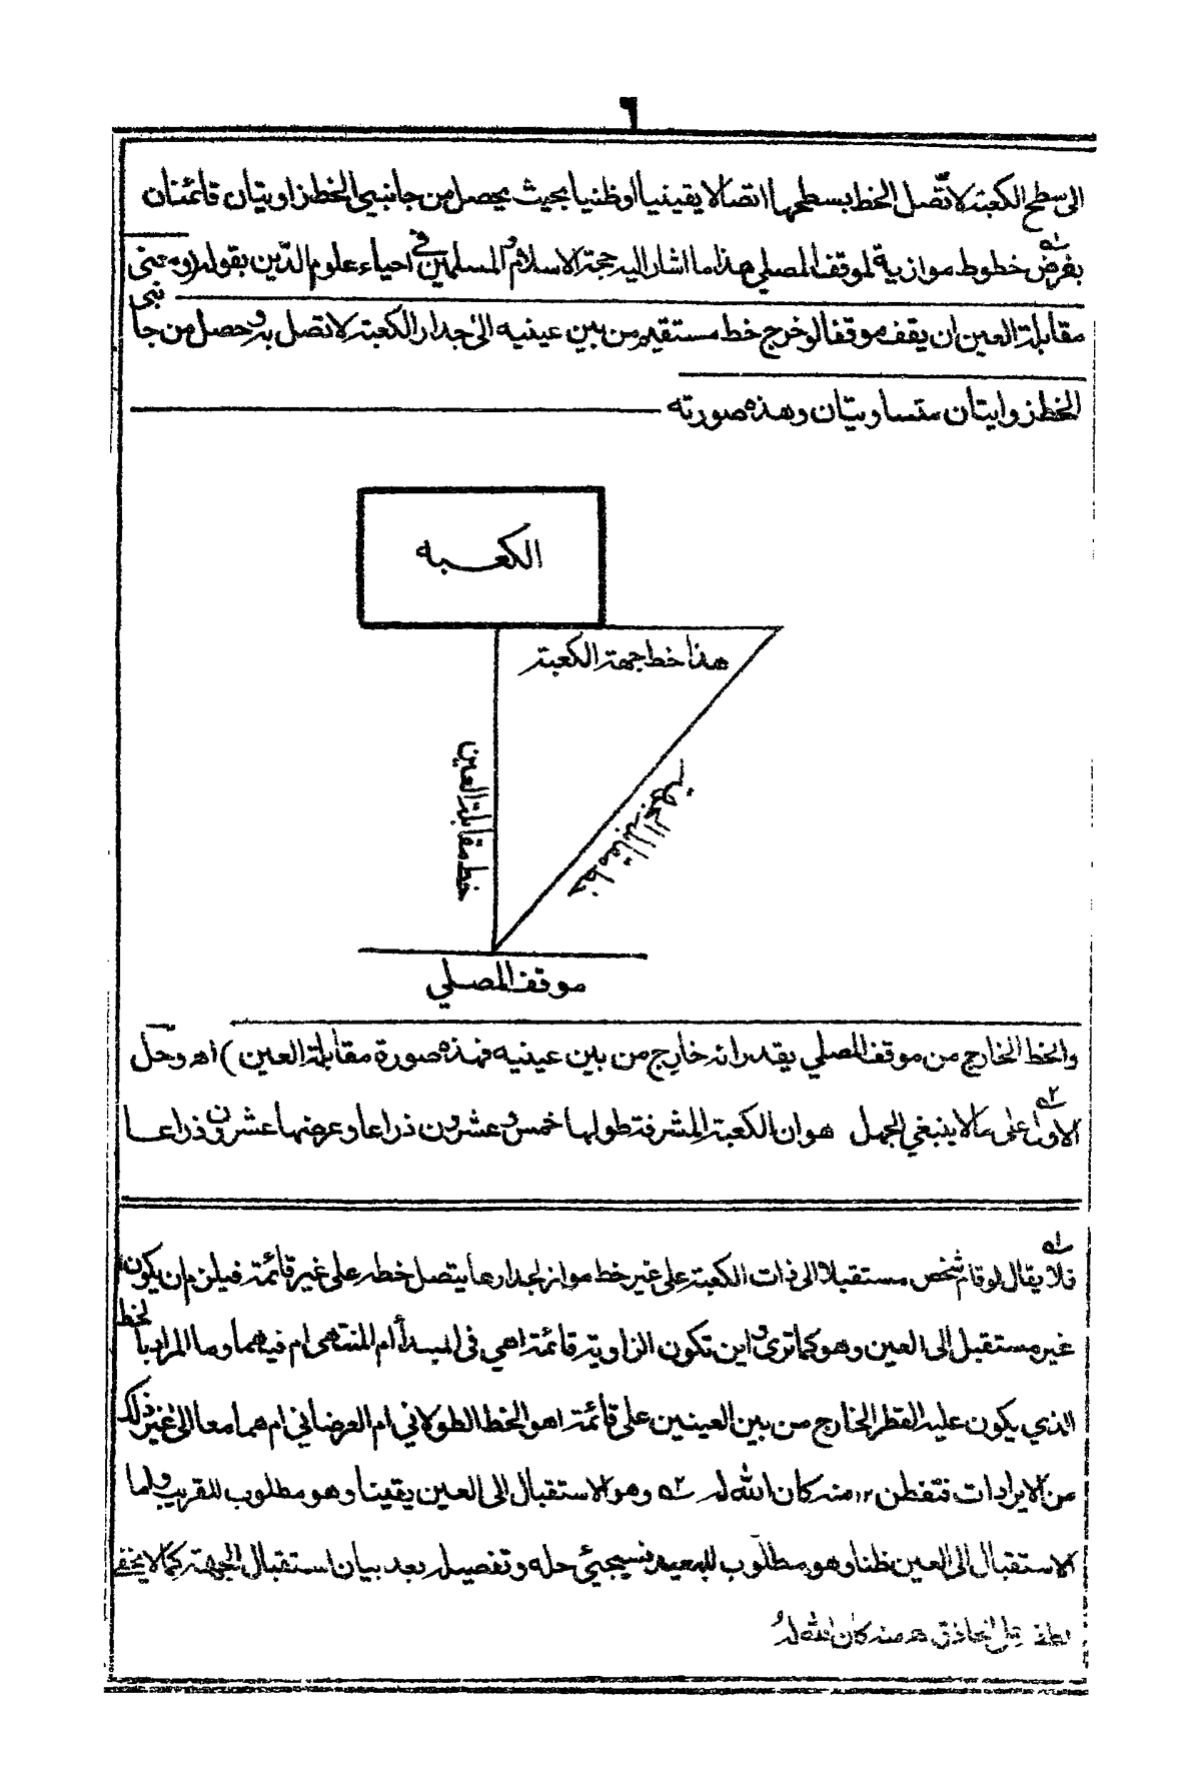 ٦
الى سطح الكعبة لاتّصل الخط بسطحها اتصالا يقينيا اوظنيا بحيث يحصل من جانبي الخط زاويتان قائمتان
بفرض خطوط موازية لموقف المصلي هذا ما اشار اليه حجة الاسلام والمسلمين في احياء علوم الدّين بقوله (ومعنى
مقابلة العين ان يقف موقفا لو خرج خط مستقيم من بين عينيه الى جدار الكعبة لاتصل به وحصل من جانبي
الخط زوايتان متساويتان وهذه صورته
الكعبه
هذا خط جهة الكعبة
خط مقابلة العين
خط مقابلة الجهة
موقف المصلي
والخط الخارج من موقف المصلي يقدر انه خارج من بين عينيه فهذه صورة مقابلة العين) اه وحل
الاول على ما لا ينبغي الجهل هو ان الكعبة المشرفة طولها خمس وعشرون ذراعا وعرضها عشرون ذراعا
له فلا يقال لو قام شخص مستقبلا الى ذات الكعبة على غير خط مواز لجدارها يتصل خطه على غير قائمة فيلزم ان يكون
غير مستقبل الى العين وهو كما ترى واين تكون الزاوية قائمة اهي في المبدأ ام المنتهى ام فيهما وما المراد بالخط
الذي يكون عليه القطر الخارج من بين العينين على قائمة اهو الخط الطولاني ام العرضاني ام هما معا الى غير ذلك
من الايرادات فتفطن ١٢ منه كان الله له ٢ه وهو الاستقبال الى العين يقينا وهو مطلوب للقريب واما
الاستقبال الى العين ظنا وهو مطلوب للبعيد فسيجيئ حله وتفصيله بعد بيان استقبال الجهة كما لا يخفى
على الحاذق منه كان الله له